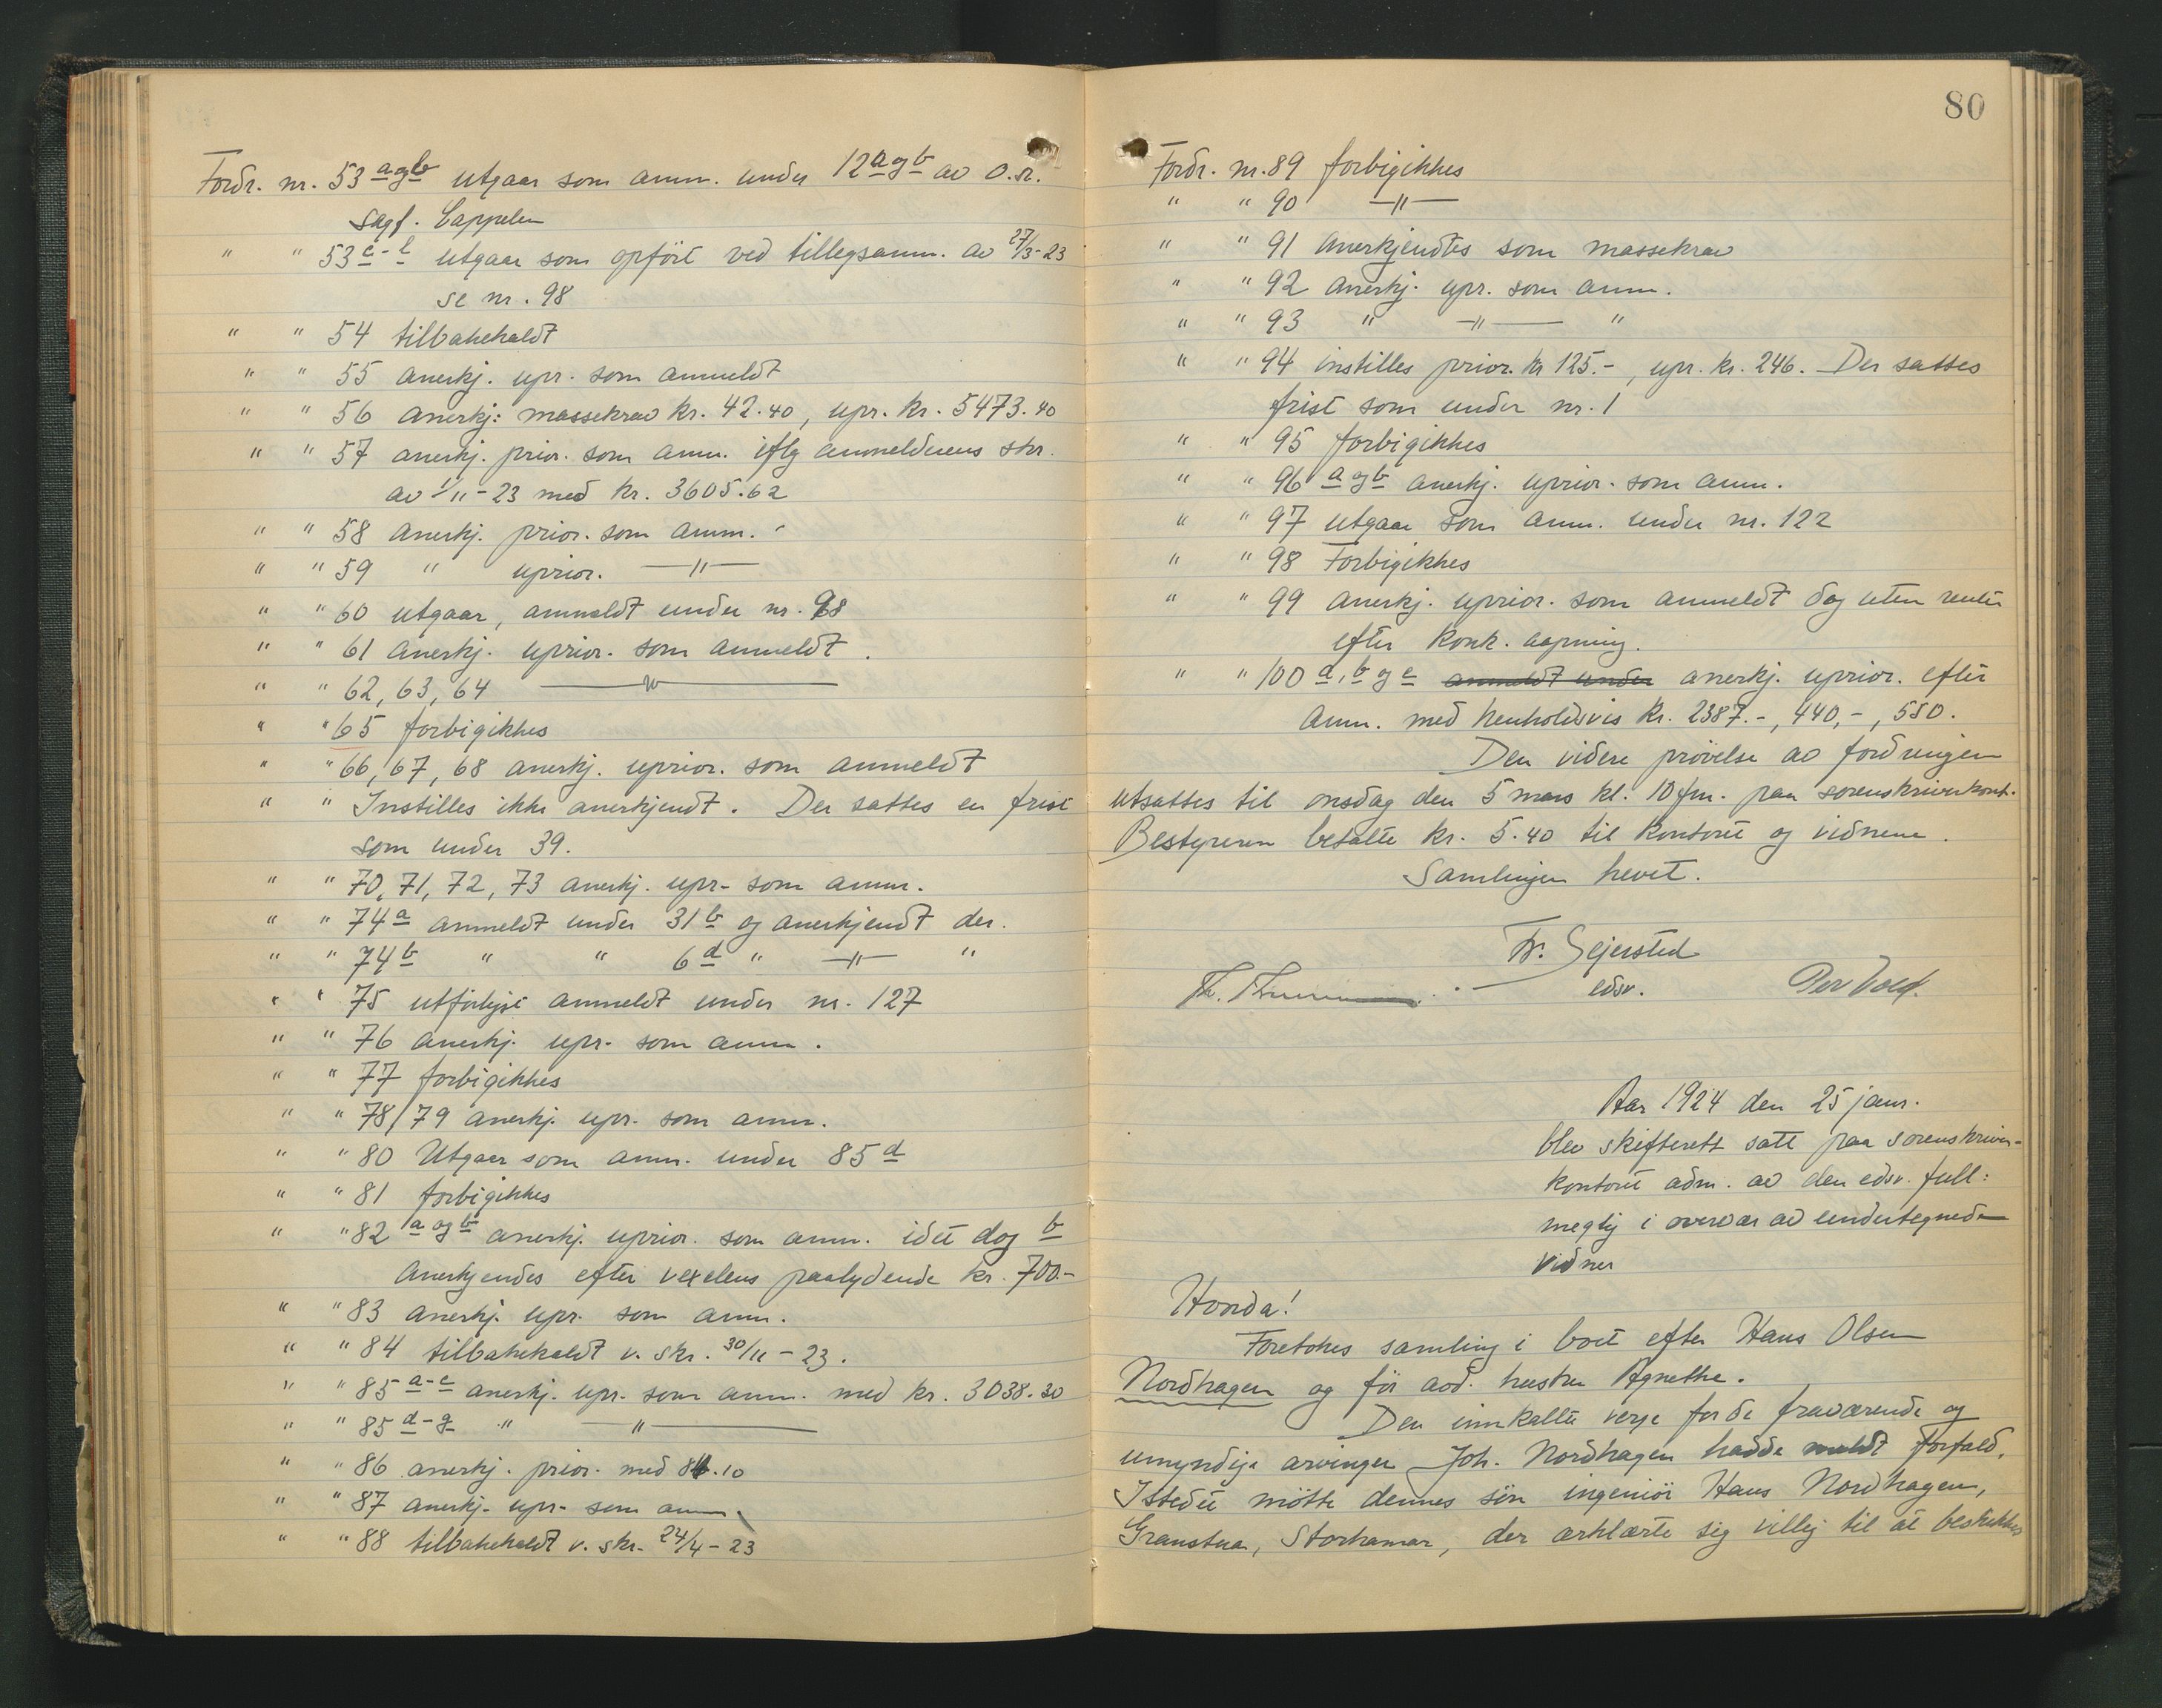 Fordr. nr. 53 a og b utgaar som anm. under 12 a og b av O.r.
sagf. Cappelen
" " 53 c-l utgaar som opført ved tillegsanm. av 27/3-23
se nr. 98
" " 54 tilbakekaldt
" " 55 anerkj. upr. som anmeldt
" " 56 anerkj: massekrav kr. 42.40, upr. kr. 5473.40
" " 57 anerkj. prior. som anm. iflg anmelderens skr.
av 1/11-23 med kr. 3605.62
" " 58 anerkj. prior. som anm.
" " 59 " uprior. —"—
" " 60 utgaar, anmeldt under nr. 98
" " 61 anerkj. uprior. som anmeldt.
" " 62, 63, 64 —"—
" " 65 forbigikkes
" " 66, 67, 68 anerkj. uprior. som anmeldt
" " Instilles ikke anerkjendt. Der sattes en frist
som under 39.
" " 70, 71, 72, 73 anerkj. upr- som anm.
" " 74 a anmeldt under 31 b og anerkjendt der.
" " 74 b " " 6 d " —"— "
" " 75 utførligst anmeldt under nr. 127
" " 76 anerkj. upr- som anm.
" " 77 forbigikkes
" " 78/79 anerkj. upr- som anm.
" " 80 Utgaar som anm. under 85 d
" " 81 forbigikkes
" " 82 a og b anerkj. uprior. som anm. idet dog b
anerkjendes efter vexelens paalydende kr. 700.-
" " 83 anerkj. upr. som anm.
" " 84 tilbakekaldt v. skr. 30/11-23.
" " 85 a-c anerkj. upr- som anm. med kr. 3038.30
" " 85 d-g " —"—
" " 86 anerkj. prior. med
" " 87 anerkj. upr- som anm.
" " 88 tilbakekaldt v. skr. 24/4-23
80
Fordr. nr. 89 forbigikkes
" " 90 —"—
" " 91 anerkjendtes som massekrav
" " 92 anerkj. upr. som anm.
" " 93 " —"— "
" " 94 instilles prior. kr 125.-, upr. kr. 246. Der sattes
frist som under nr. 1
" " 95 forbigikkes
" " 96 a og b anerkj. uprior. som anm.
" " 97 utgaar som anm. under nr. 122
" " 98 Forbigikkes
" " 99 anerkj. uprior. som anmeldt dog uten renter
efter konk. aapning.
" " 100 a, b og c anmeldt under anerkj. uprior. efter
anm. med henholdsvis kr. 2387.-, 440,-, 550.
Den videre prøvelse av fordringen
utsattes til onsdag den 5 mars kl. 10 fm. paa sorenskriverkont.
Bestyreren betalte kr. 5.40 til kontoret og vidnene.
Samlingen hevet.
Fr. Sejersted
edsv.
Th.
Aar 1924 den 25 janr.
blev skifterett satt paa sorenskriver-
kontoret adm. av den edsv. full:
megtig i overvær av undertegnede
vidner
Hvorda!
Foretokes samling i boet efter Hans Olsen
Nordhagen og før avd. hustru Agnethe.
Den innkalte verge for de fraværende og
umyndige arvinger Joh. Nordhagen hadde meldt forfald.
Istedet møtte dennes søn ingeniør Hans Nordhagen,
Granstua, Storhamar, der erklærte sig villig til at beskikkes